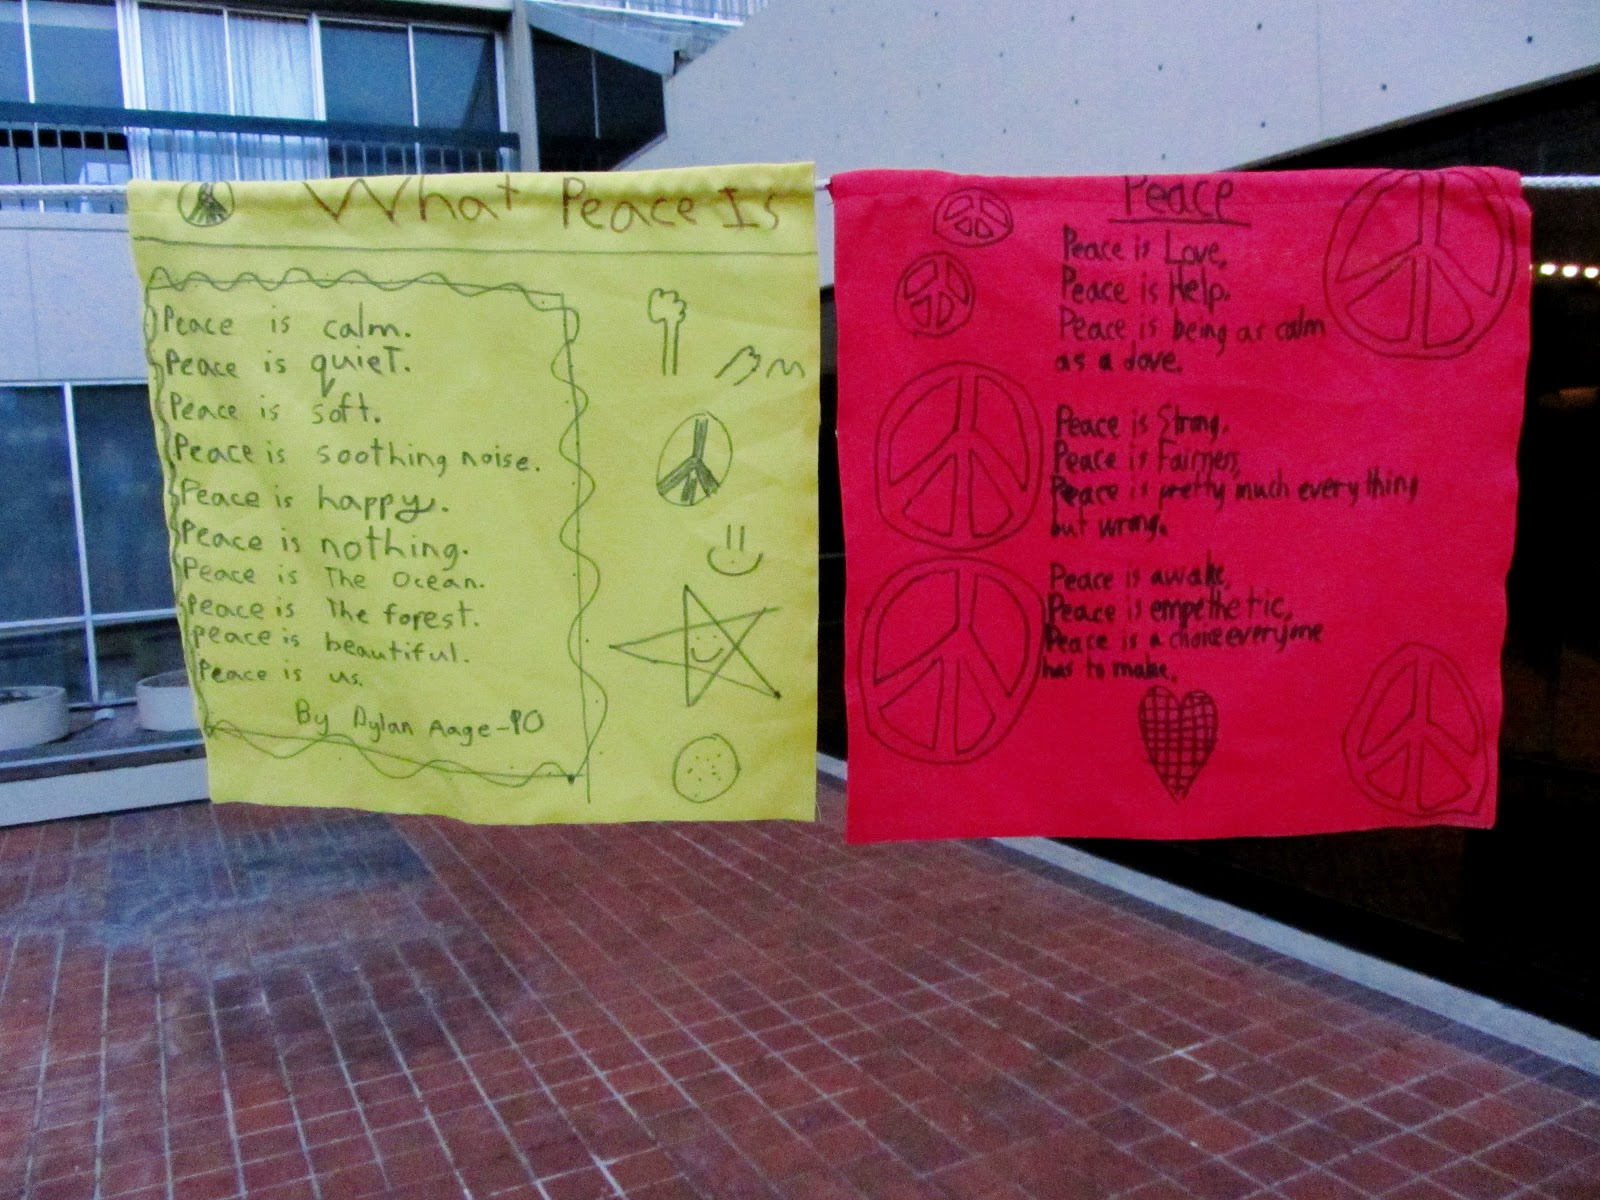 What Peace Is
Peace is calm.
Peace is quiet.
Peace is soft.
Peace is soothing noise.
Peace is happy.
Peace is nothing.
Peace is The Ocean.
Peace is The forest.
peace is beautiful.
Peace is us.
By Dylan Aage-10
Peace
Peace is Love,
Peace is Help.
Peace is being as calm
as a dove.
Peace is Strong.
Peace is Fairness,
Peace is pretty much everything
but wrong.
Peace is awake,
Peace is empethetic,
Peace is a choice everyone
has to make.